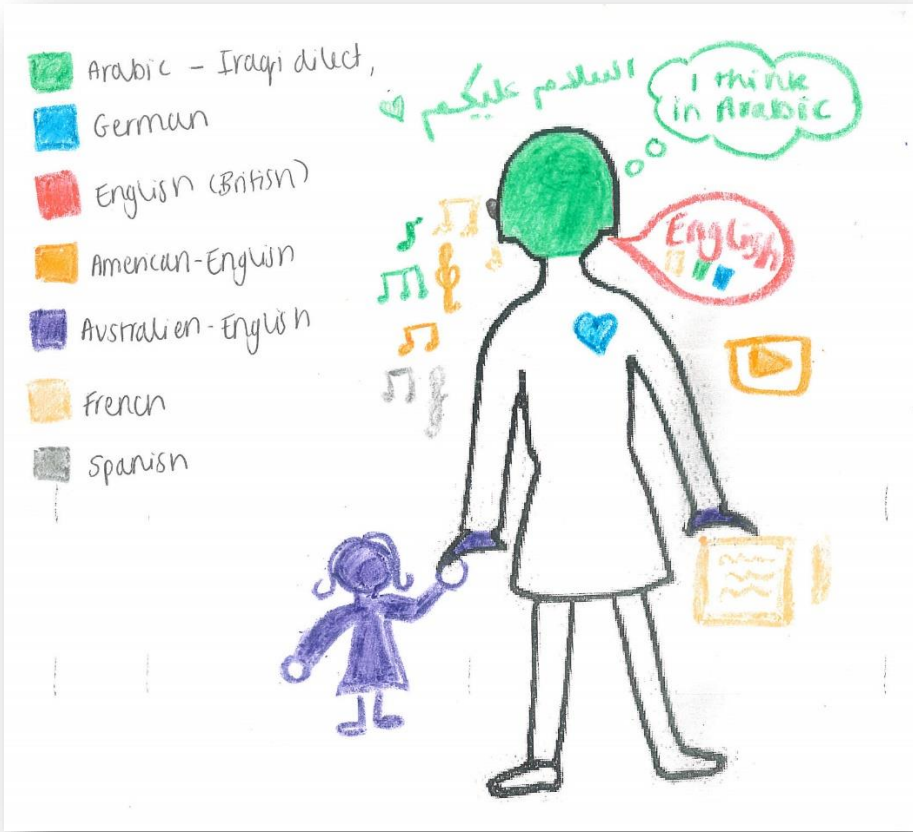 Arabic – Iraqi dilect,
German
English (British)
American-English
Australien-English
French
Spanish
السلام عليكم
I think
in Arabic
English